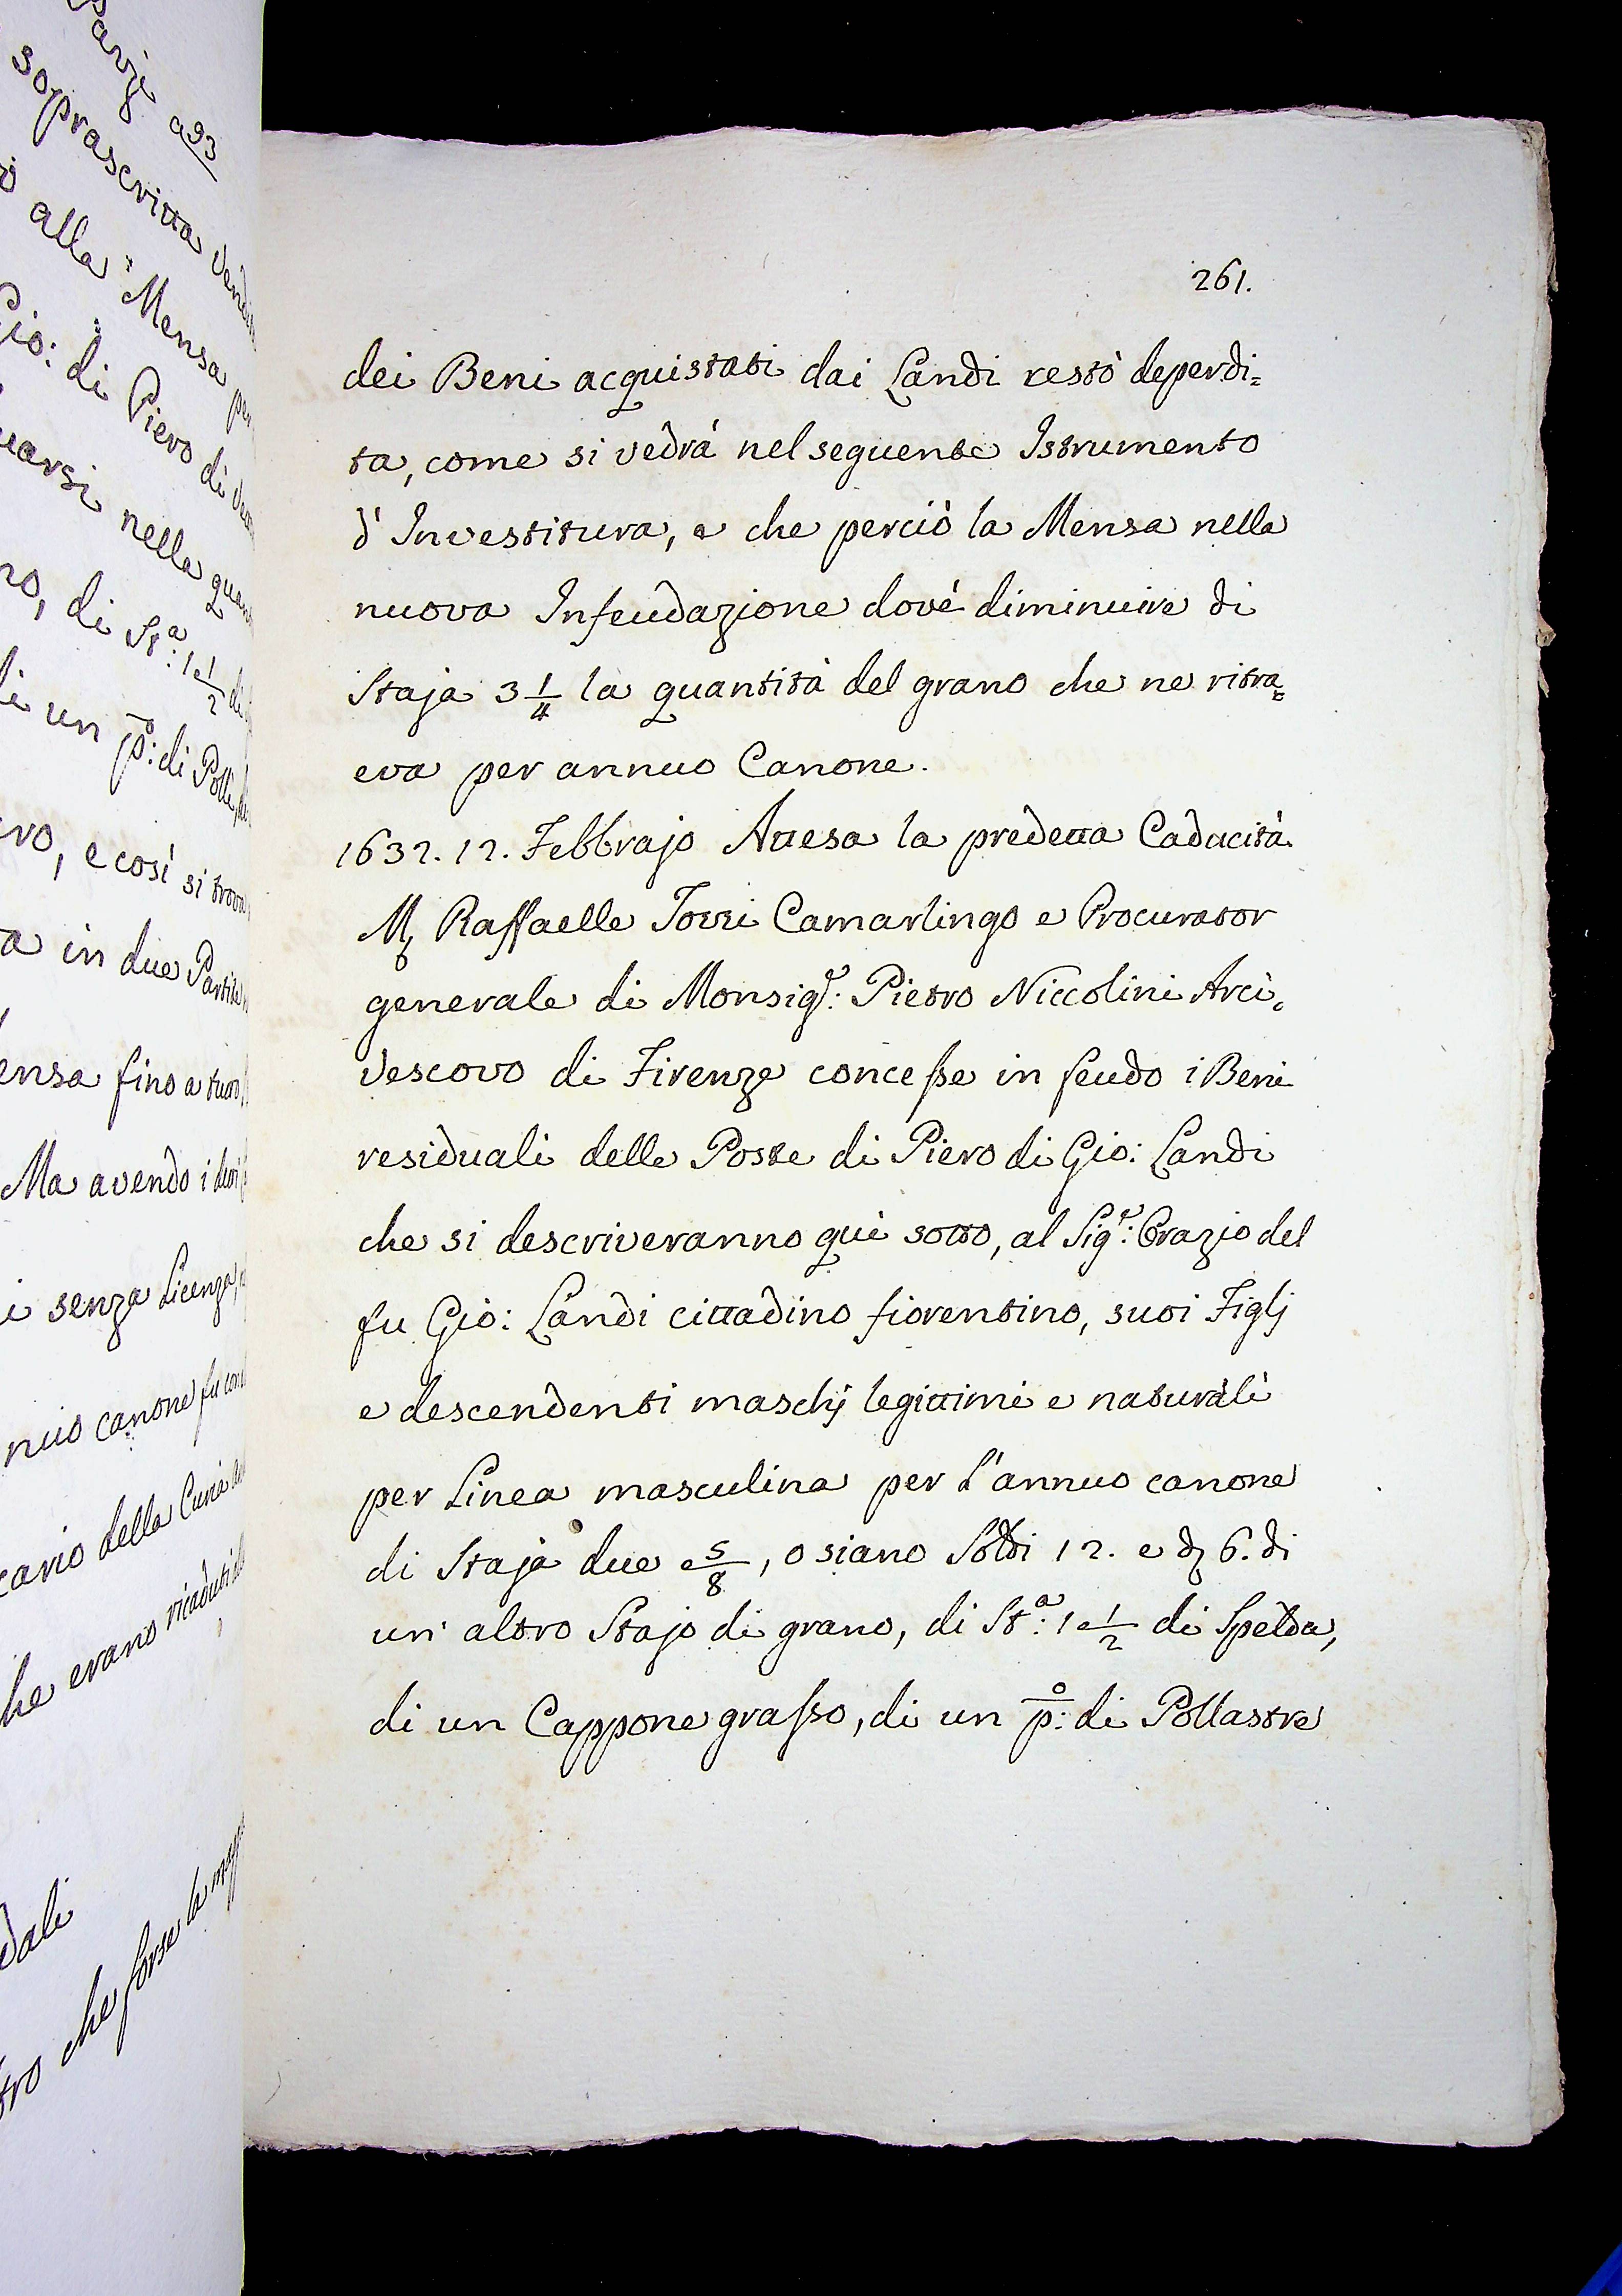 261.
dei Beni acquistati dai Landi restò deperdi=
ta, come si vedrà nel seguente Istrumento
d'Investitura, e che perciò la Mensa nella
nuova Infeudazione dovè diminuire di
Staja 3 1/4 la quantità del grano che ne ritra=
eva per annuo Canone.
1632. 12. Febbrajo Attesa la predetta Caducità
M. Raffaelle Torri Camarlingo e Procurator
generale di Monsig.r: Pietro Niccolini Arci=
vescovo di Firenze concesse in feudo i Beni
residuali delle Poste di Piero di Gio: Landi
che si descriveranno quì sotto, al Sig.r: Orazio del
fu Gio: Landi cittadino fiorentino, suoi Figlj
e descendenti maschj legittimi e naturali
per Linea masculina per l'annuo canone
di Staja due e 5/8, o siano Soldi 12. e d. 6. di
un' altro Stajo di grano, di St.a: 1 e 1/2 di Spelda,
di un Cappone grasso, di un p.o: di Pollastre
soprascritta
alla Mensa
Gio: di Piero di
nella
di St.a: 1 e 1/2 di
un p.o: di
e così si
in due
fino a
Ma avendo i
senza Licenza,
canone fu
della Curia
che erano
che forse la